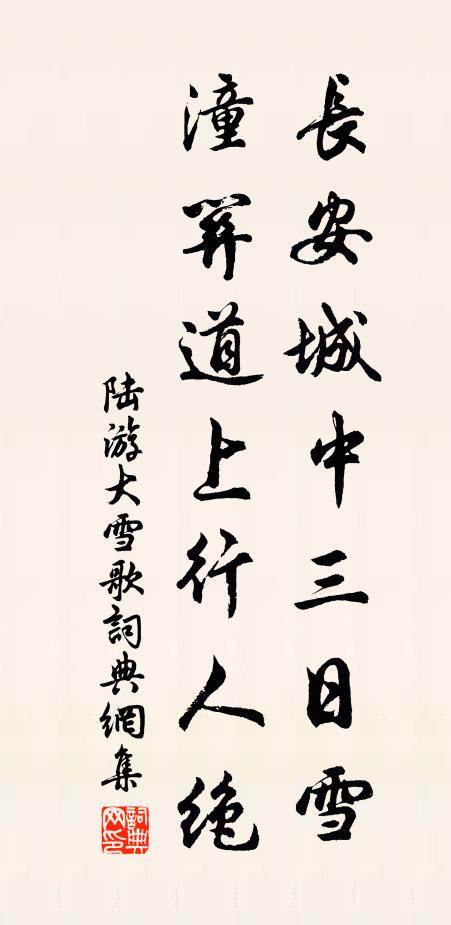 長安城中三日雪
潼關道上行人絶
陸游大雪歌詞典網集
詞典
网印